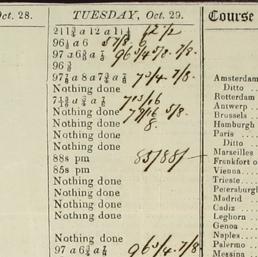 ct. 28.
TUESDAY, Oct. 29.
Course
211¾ a 12 a 11¾ 12 1/2
96⅛ a 6 5 7/8 6
97 a 6⅞ a 7 96 3/4 5/8 7/8
96¾
97⅞ a 8 a 7¾ a ⅞ 7 3/4 7/8
Nothing done
7 13/16
Nothing done 7 9/16 5/8
Nothing done 8
Nothing done
Nothing done
88s pm 83/85/
85s pm
Nothing done
Nothing done
Nothing done
Nothing done
Nothing done
97 a 6¾ a ⅞ 96 3/4 7/8
Amsterdam
Ditto
Rotterdam
Antwerp
Brussels
Hamburgh
Paris
Ditto
Marseilles
Frankfort o
Vienna
Trieste
Petersburgh
Madrid
Cadiz
Leghorn
Genoa
Naples
Palermo
Messina